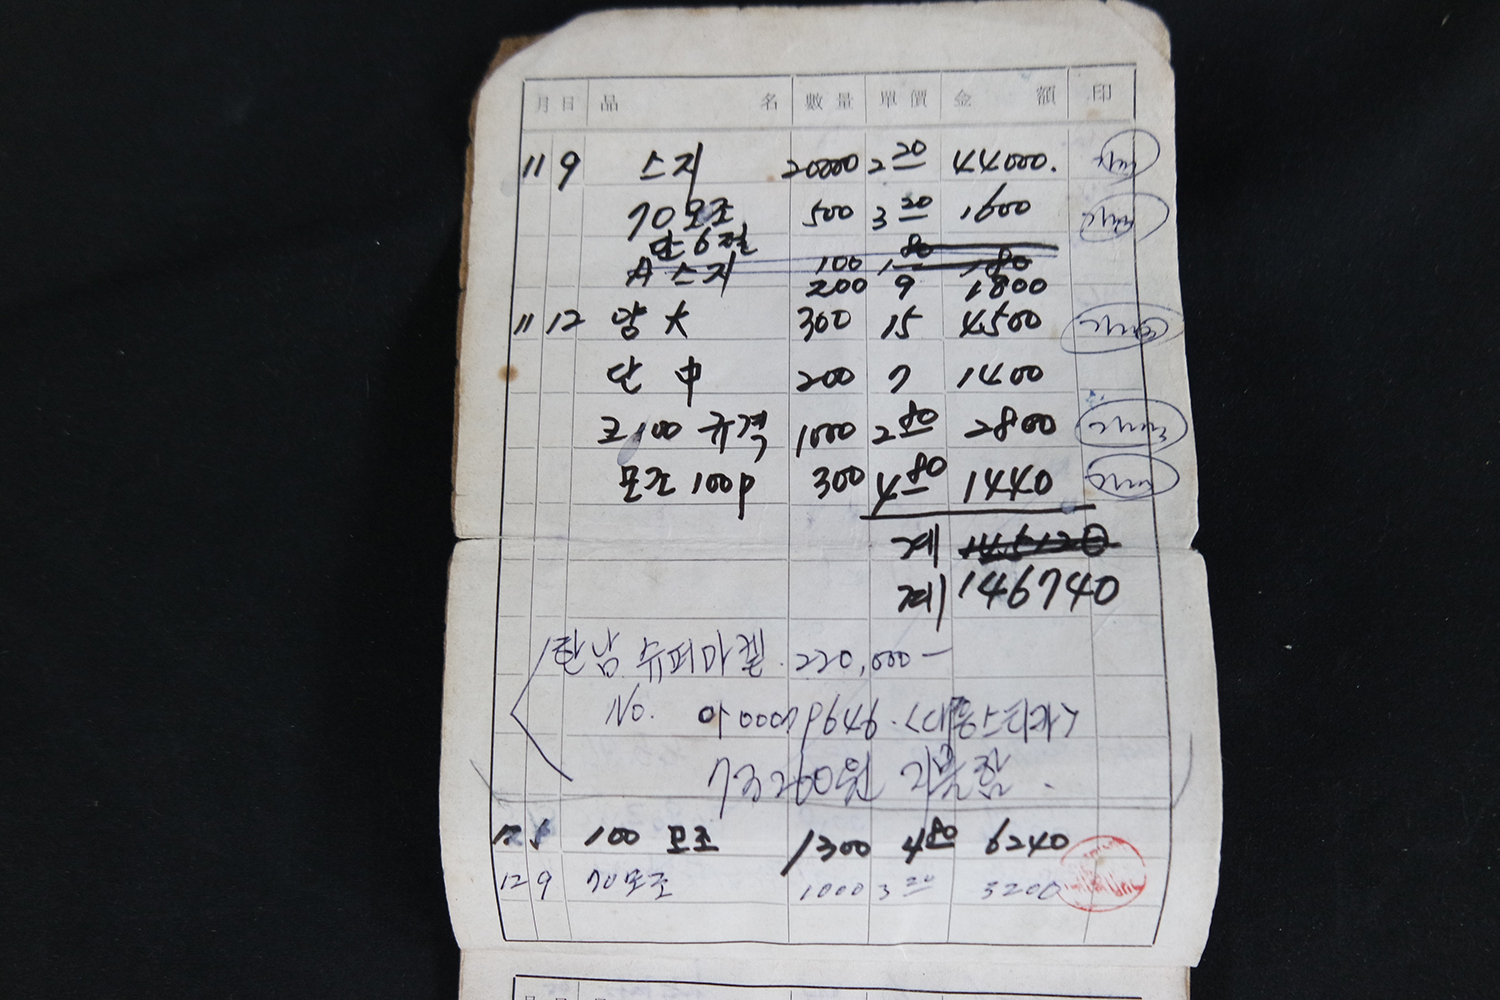 月 日 品 名 數量 單價 金 額 印
11 9 스지 20000 2 20 44000.
70모조 500 3 20 1600
단6절
A 스지 100 1 80 180
200 9 1800
11 12 양 大 300 15 4500
단 中 200 7 1400
코100 규격 1000 2 80 2800
모조 100p 300 4 80 1440
계 145120
계 146740
한남 슈퍼마켙. 220,000-
No. 아
73260원 지불함.
12 100 모조 1300 4 80 6240
12 9 70모조 1000 3 20 3200
月 日 品